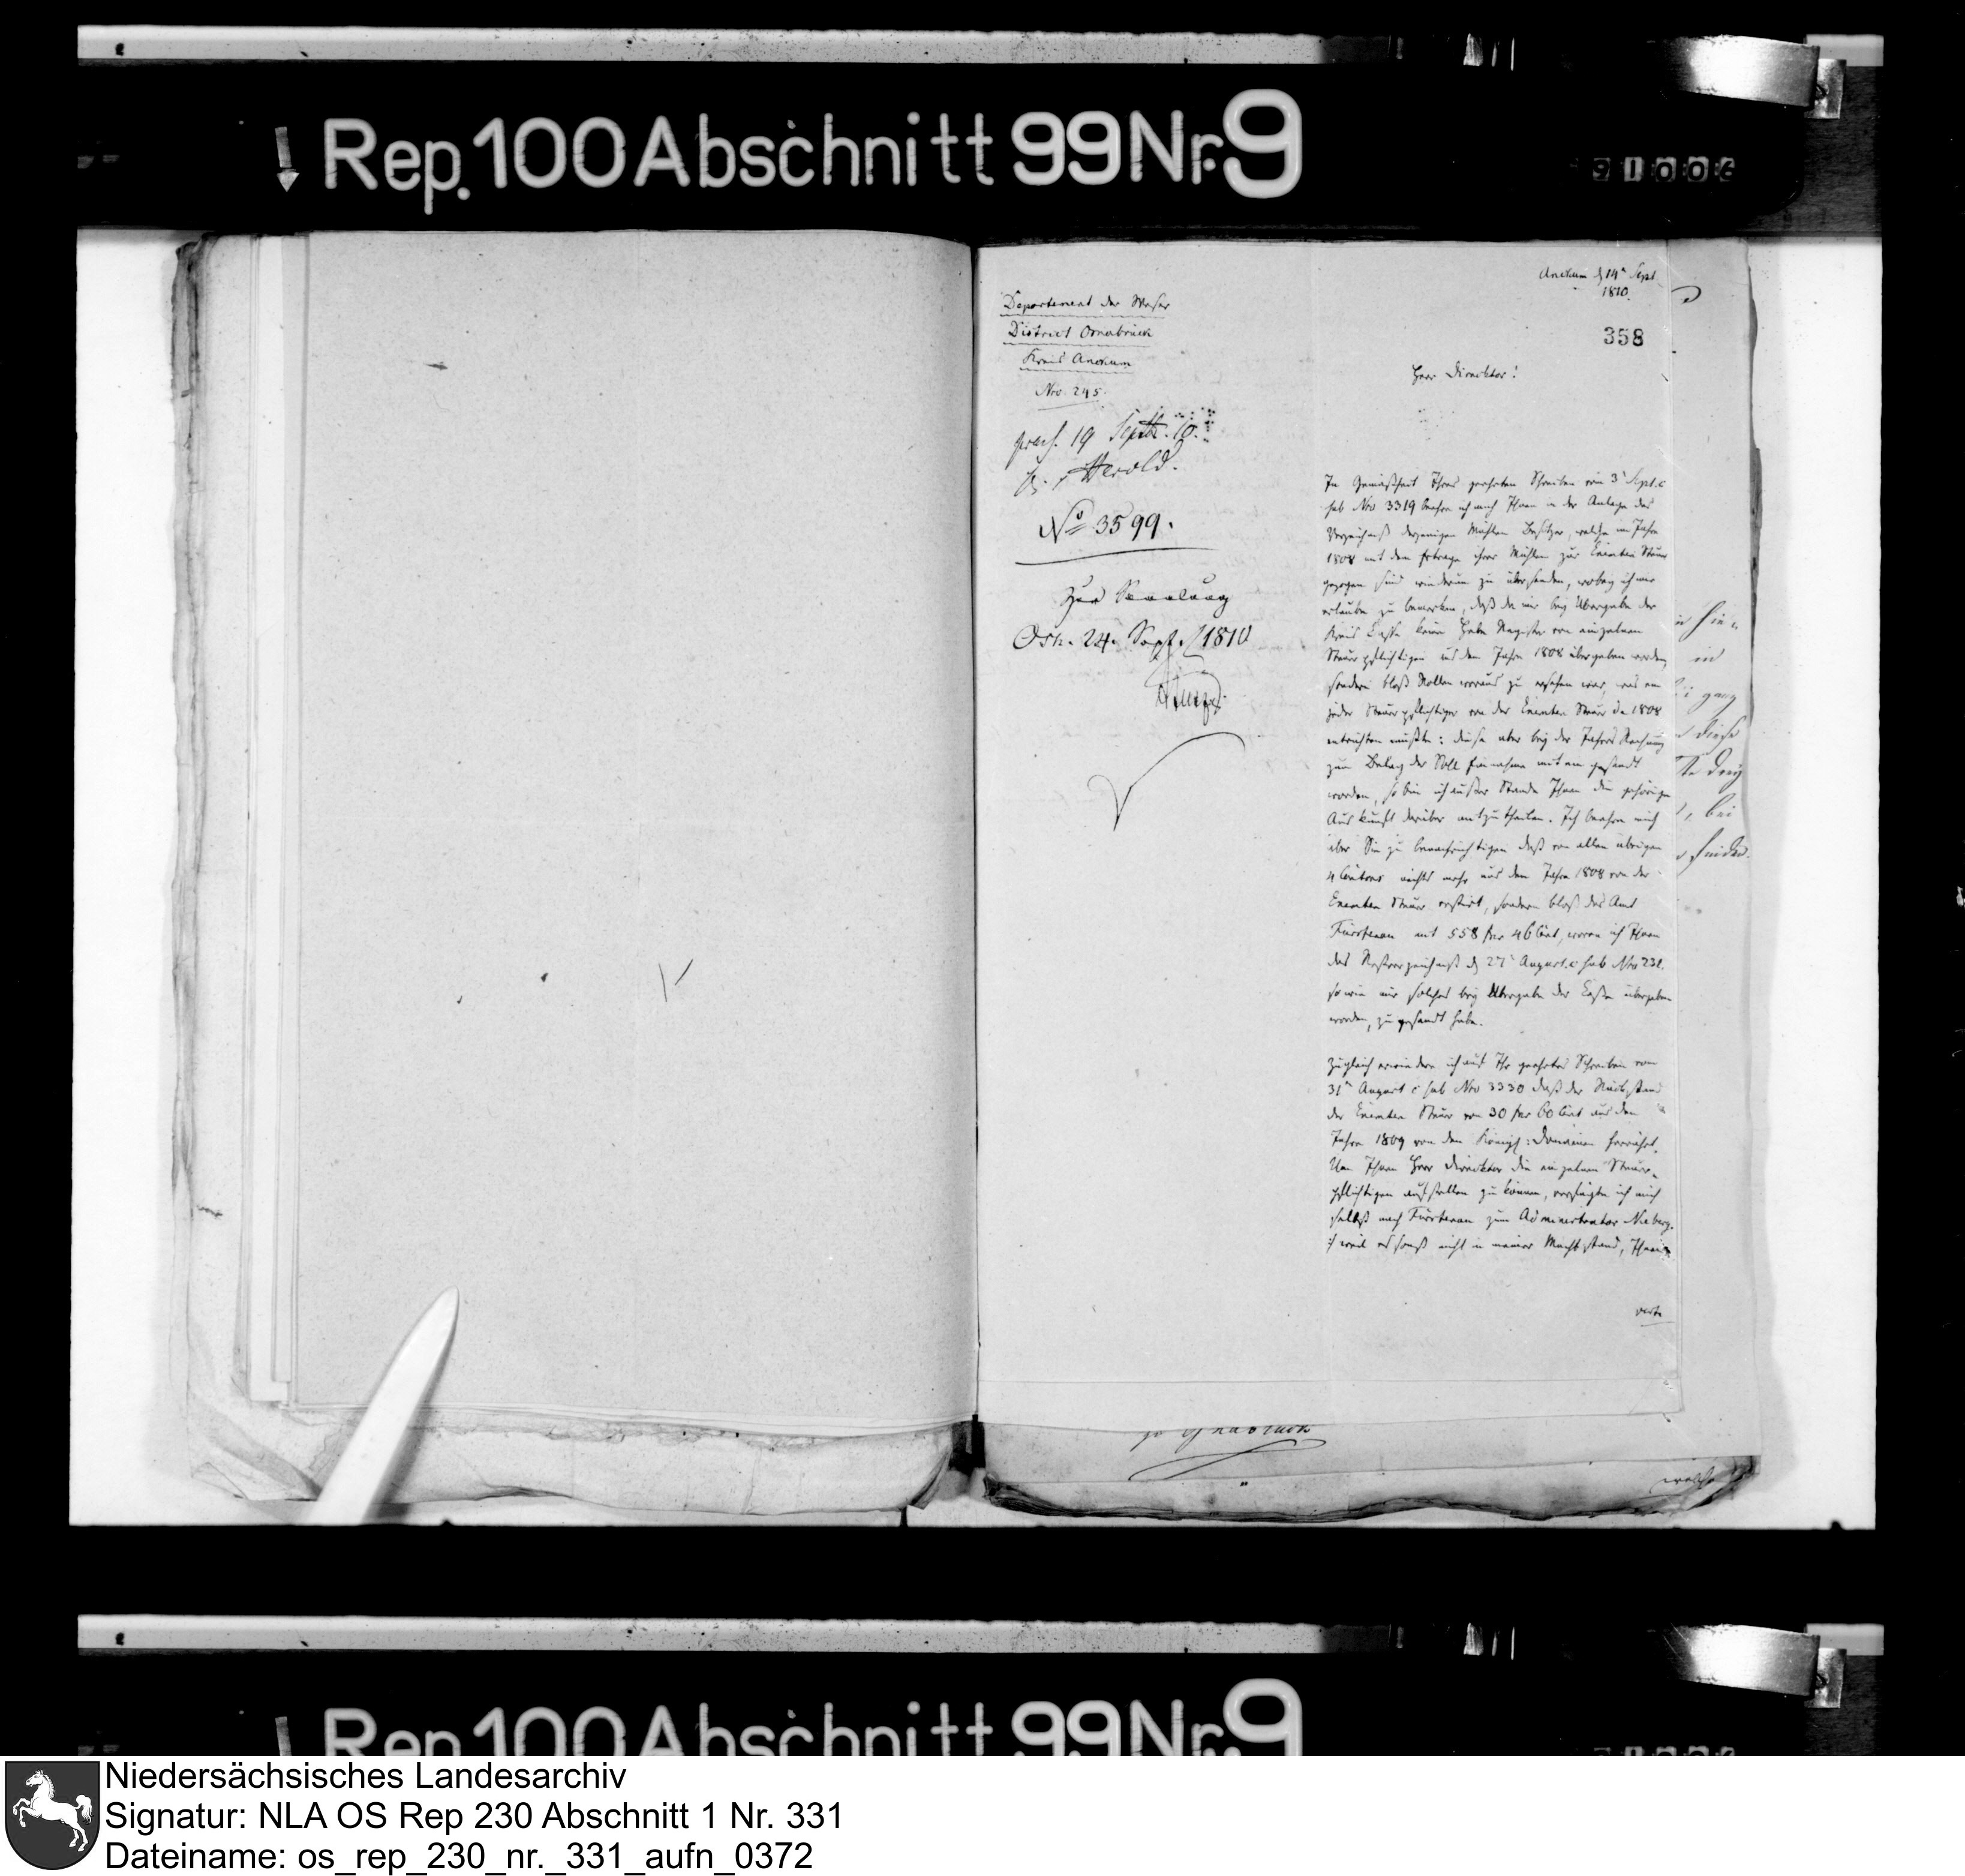 Rep. 100 Abschnitt 99 Nr. 9
91006
Departement der Weser
District Osnabrück
Kreis Anckum
Nro. 245.
praes. 19 Septbr. 10.
Herold.
No 3599.
Zur Sammlung
Osn. 24. Sept. 1810
Anckum d 14n Sept.
1810.
358
Herr Direcktor!
In Gemäßheit Ihres geehrten Schreiben vom 3n Sept. c
sub Nro 3319 beehre ich mich Ihnen in der Anlage das
Verzeichniß derjenigen Mühlen Besitzer, welche im Jahre
1808 mit dem Ertrage ihrer Mühlen zur Exemten Steuer
gezogen sind wiederum zu übersenden, wobey ich mir
erlaube zu bemerken, daß da mir bey Übergabe der
Kreis Casse keine Hebe Register von einzelnen
Steuerpflichtigen aus dem Jahre 1808 übergeben worden,
sondern bloß Rollen woraus zu ersehen war, was ein
jeder Steuerpflichtiger von der Exemten Steuer de 1808
entrichten mußte: diese aber bey der Jahres Rechnung
zum Beleg der Soll Einnahme mit ein gesandt
worden, so bin ich außer Stande Ihnen die gehörige
Auskunft darüber mitzutheilen. Ich beehre mich
aber Sie zu benachrichtigen daß von allen übrigen
4 Cantons nichts mehr aus dem Jahre 1808 von der
Exemten Steuer restirt, sondern bloß das Amt
Fürstenau mit 558 fr 46 Cent, wovon ich Ihnen
das Restverzeichniß d 27n August. c sub Nro 231.
so wie mir solches bey Übergabe der Casse übergeben
worden, zugesandt habe.
Zugleich erwiedere ich auf Ihr geehrtes Schreiben vom
31n August c sub Nro 3330 daß der Rückstand
der Exemten Steuer von 30 fr 60 Cent aus dem
Jahre 1809 von den Königl: Domainen herrührt.
Um Ihnen Herr Direcktor die einzelnen Steuer-
pflichtigen aufstellen zu können, verfügte ich mich
selbst nach Fürstenau zum Administrator Nieberg.
weil es sonst nicht in meiner Macht stand, Ihnen
verte
in
ganz
diese
drey
bei
finden
zu Osnabrück
welche
Rep. 100 Abschnitt 99 Nr. 9
Niedersächsisches Landesarchiv
Signatur: NLA OS Rep 230 Abschnitt 1 Nr. 331
Dateiname: os_rep_230_nr._331_aufn_0372